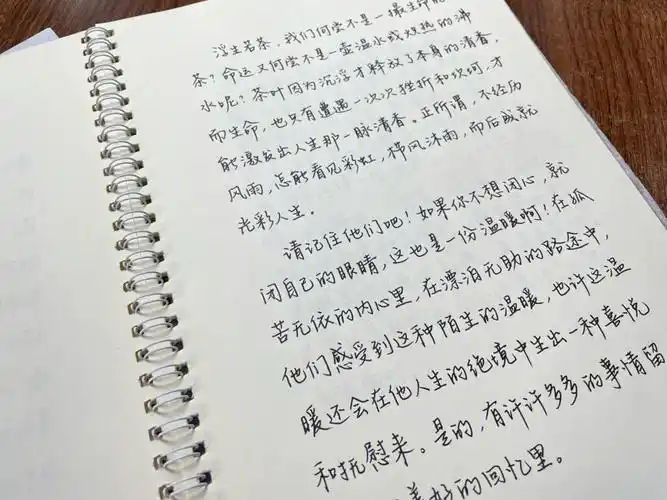 浮生若茶，我们何尝不是一撮生命的
茶？命运又何尝不是一壶温水或炽热的沸
水呢？茶叶因为沉浮才释放了本身的清香，
而生命，也只有遭遇一次次挫折和坎坷，才
能激发出人生那一脉清香。正所谓，不经历
风雨，怎能看见彩虹，栉风沐雨，而后成就
光彩人生。
请记住他们吧！如果你不想闭心，就
闭自己的眼睛，这也是一份温暖啊！在孤
苦无依的内心里，在漂泊无助的路途中，
他们感受到这种陌生的温暖，也许这温
暖还会在他人生的绝境中生出一种喜悦
和抚慰来。是的，有许许多多的事情留
美好的回忆里。